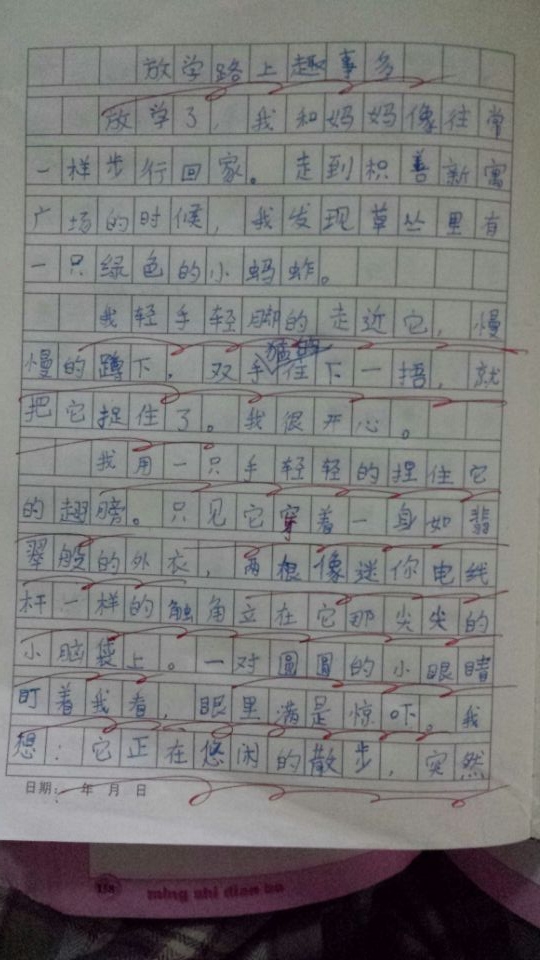 放学路上趣事多
放学了，我和妈妈像往常
一样步行回家。走到积善新寓
广场的时候，我发现草丛里有
一只绿色的小蚂蚱。
我轻手轻脚的走近它，慢
慢的蹲下，双手猛的往下一捂，就
把它捉住了。我很开心。
我用一只手轻轻的捏住它
的翅膀。只见它穿着一身如翡
翠般的外衣，两根像迷你电线
杆一样的触角立在它那尖尖的
小脑袋上。一对圆圆的小眼睛
盯着我看，眼里满是惊吓。我
想：它正在悠闲的散步，突然
日期： 年 月 日
ming shi dian bo